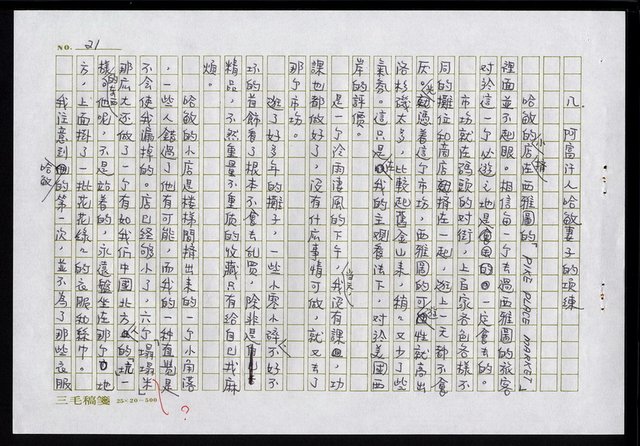 NO. 21
八、阿富汗人哈敏妻子的項練
哈敏的店在西雅圖的「PIKE PLACE MARKET」
裡面並不起眼。相信每一個去過西雅圖的旅客
對於這一個必遊之地是一定會去的。
市場就在碼頭的對街,上百家各色各樣不
同的攤位和商店排在一起,逛上一天都不會
厭。光憑着這個市場,西雅圖的可逛性就高出
洛杉磯太多,比較起舊金山來,稍稍又少了些
氣氛。這只是在我的主觀看法下,對於美國西
岸的評價。
是一個冷雨淒風的下午,我當天沒有課,功
課也都做好了,沒有什麼事情可做,就又去了
那個市場。
逛了好多年的攤子,一些小零小碎不好不
壞的首飾看了根本不會去亂買,除非是
精品,不然重量不重質的收藏只有給自己找麻
煩。
哈敏的小店是樣樣間排出來的一個小角落
,一些人錯過了他有可能,而我的一種直覺是
不會使我漏掉的。店已經夠小了,六個塌塌米
那麼大還做了一個有如我們中國北方的「炕」一
樣的東西。他呢,不是站着的,永遠盤坐在那個地
方,上面掛了一批花花綠綠的衣服和絲巾。
我注意到哈敏的第一次,並不為了那些衣服
三毛稿箋 25×20=500
?